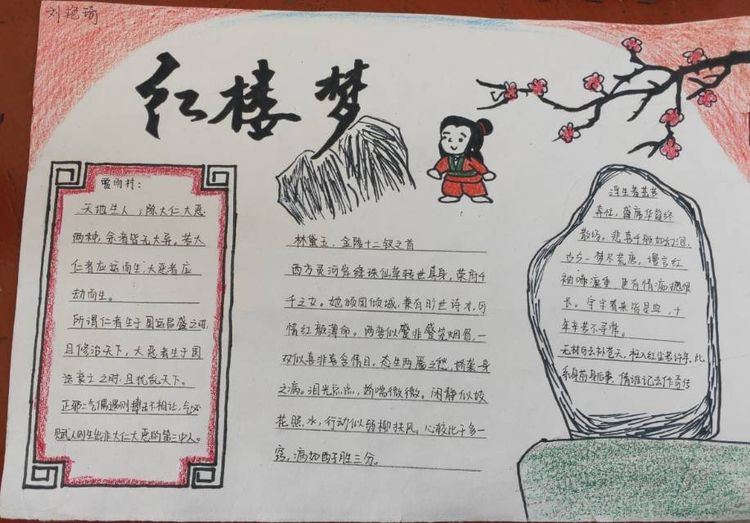 刘艳瑜
红楼梦
贾雨村：
天地生人，除大仁大恶
两种，余者皆无大异。若大
仁者应运而生，大恶者应
劫而生。
所谓仁者生于国运昌盛之时，
且修治天下，大恶者生于国
运衰亡之时，且扰乱天下。
正邪二气偶遇则搏不相让，气必
赋人则生出非大仁大恶的第三中人。
林黛玉，金陵十二钗之首
西方灵河岸绛珠仙草转世真身，荣府千
千之女。她倾国倾城，兼有旷世诗才，
情红颜薄命。两弯似蹙非蹙笼烟眉，一
双似喜非喜含情目，态生两靥之愁，娇袭一身
之病。泪光点点，娇喘微微。闲静似姣
花照水，行动似弱柳扶风。心较比干多一
窍，病如西子胜三分。
浮生着甚苦
奔忙，盛席华筵终
散场。悲喜千般如幻渺，
古今一梦尽荒唐，谩言红
袖啼痕重，更有情痴抱恨
长。字字看来皆是血，十
年辛苦不寻常。
无材可去补苍天，枉入红尘若许年，此
系身前身后事，倩谁记去作奇传